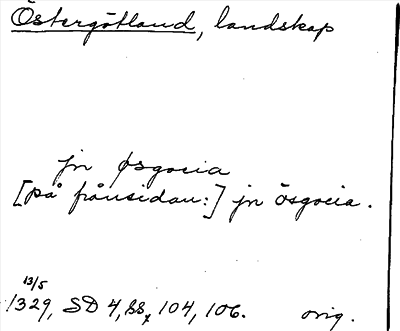 Östergötland, landskap
jn øsgocia
[på frånsidan:] jn ösgocia.
13/5
1329, SD 4, ss, 104, 106. orig.